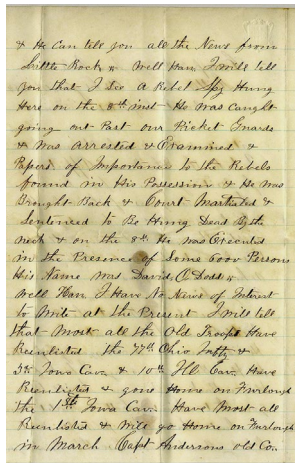 & He Can tell you all the News from
Little Rock " Well Han, I will tell
you that I See A Rebel Spy Hung
Here on the 8th inst He was Caught
going out Past our Picket Guards
& Was Arrested & Examined &
Papers of Importance to the Rebels
found in His Possession & He Was
Brought Back & Court Martialed &
Sentenced to Be Hung Dead By the
neck & on the 8th He was Executed
in the Presence of Some 6000 Persons
His Name Was David O Dodd "
Well Han, I Have No News of Interest
to Write at the Present I will tell
that Most all the Old Troops Have
Reenlisted the 77th Ohio Infty &
3rd Iowa Cav. & 10th Ill Cav. Have
Reenlisted & gone Home on Furlough
the 1st Iowa Cav. Have Most all
Reenlisted & Will go Home on Furlough
in March Capt Andersons old Co.